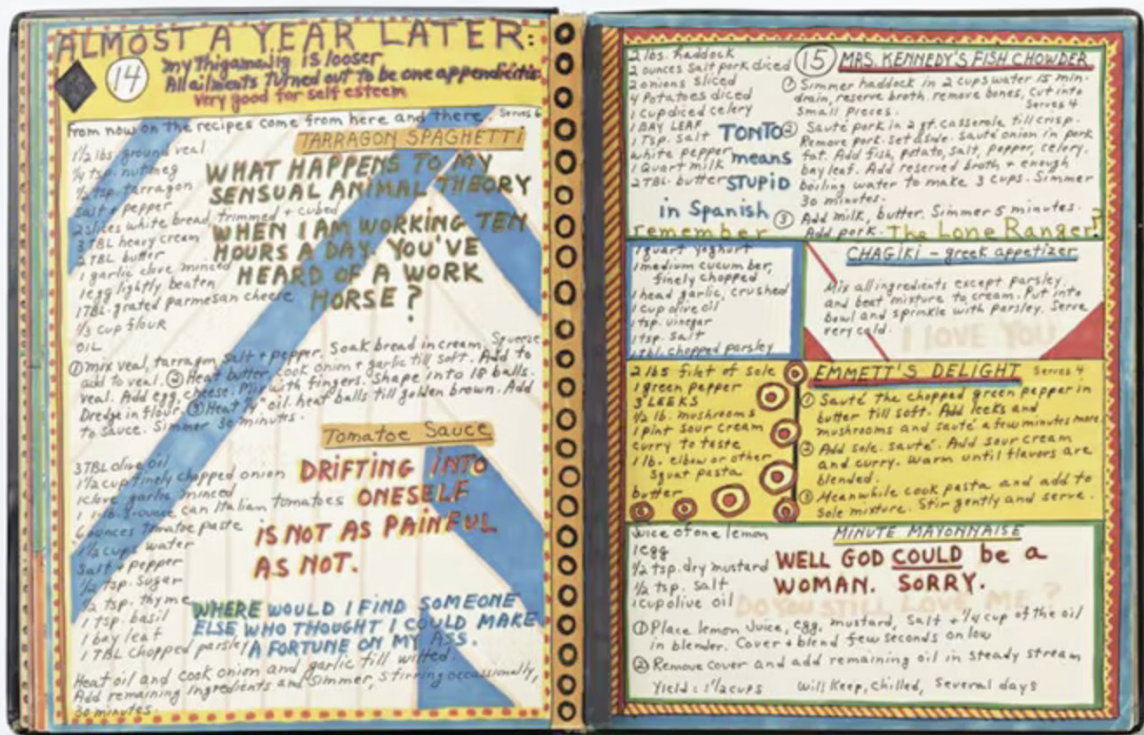 ALMOST A YEAR LATER:
14
my Thigamajig is looser
All ailments turned out to be one appendicitis
very good for self esteem
From now on the recipes come from here and there. Serves 6
TARRAGON SPAGHETTI
1 1/2 lbs ground veal
1/4 tsp. nutmeg
1/2 tsp. tarragon
salt + pepper
2 slices white bread, trimmed + cubed
3 TBL heavy cream
2 TBL butter
1 garlic clove minced
1 egg lightly beaten
1 TBL grated parmesan cheese
1/3 cup flour
OIL
WHAT HAPPENS TO MY
SENSUAL ANIMAL THEORY
WHEN I AM WORKING TEN
HOURS A DAY. YOU'VE
HEARD OF A WORK
HORSE?
① Mix veal, tarragon, salt + pepper. Soak bread in cream. Squeeze
add to veal. ② Heat butter, cook onion + garlic till soft. Add to
veal. Add egg, cheese. Mix with fingers. Shape into 18 balls.
Dredge in flour. ③ Heat 1/4" oil. heat balls till golden brown. Add
to sauce. Simmer 30 minutes.
Tomatoe Sauce
3 TBL olive oil
1/2 cup finely chopped onion
1 clove garlic minced
can Italian tomatoes
6 ounces tomatoe paste
1 1/2 cups water
Salt + pepper
1/2 tsp. sugar
1/2 tsp. thyme
1 tsp. basil
1 bay leaf
1 TBL chopped parsley
DRIFTING INTO
ONESELF
IS NOT AS PAINFUL
AS NOT.
WHERE WOULD I FIND SOMEONE
ELSE WHO THOUGHT I COULD MAKE
A FORTUNE ON MY ASS.
Heat oil and cook onion and garlic till wilted.
Add remaining ingredients and simmer, stirring occassionally,
30 minutes.
15
MRS. KENNEDY'S FISH CHOWDER
2 lbs. haddock
2 ounces salt pork diced
2 onions sliced
4 Potatoes diced
1 cup diced celery
1 BAY LEAF
1 Tsp. salt
white pepper
1 Quart milk
2 TBL butter
① Simmer haddock in 2 cups water 15 min.
drain, reserve broth. remove bones, cut into
small pieces. Serves 4
② Sauté pork in 2 qt. casserole till crisp.
Remove pork. Set aside. Sauté onion in pork
fat. Add fish, potato, salt, pepper, celery,
bay leaf. Add reserved broth + enough
boiling water to make 3 cups. Simmer
30 minutes.
③ Add milk, butter. Simmer 5 minutes.
Add pork.
TONTO
means
STUPID
in Spanish
remember The Lone Ranger?
CHAGIKI - greek appetizer
1 quart yoghurt
1 medium cucumber,
finely chopped
1 head garlic, crushed
1 cup olive oil
1 tsp. vinegar
1 tsp. salt
1 tbl. chopped parsley
Mix all ingredients except parsley,
and beat mixture to cream. Put into
bowl and sprinkle with parsley. Serve
very cold.
I LOVE YOU
EMMETT'S DELIGHT Serves 4
2 lbs filet of sole
1 green pepper
3 LEEKS
1/2 lb. mushrooms
1 pint sour cream
curry to taste
1 lb. elbow or other
squat pasta
butter
① Sauté the chopped green pepper in
butter till soft. Add leeks and
mushrooms and sauté a few minutes more.
② Add sole. sauté. Add sour cream
and curry. Warm until flavors are
blended.
③ Meanwhile cook pasta and add to
sole mixture. Stir gently and serve.
MINUTE MAYONNAISE
Juice of one lemon
1 egg
1/2 tsp. dry mustard
1/2 tsp. salt
1 cup olive oil
WELL GOD COULD be a
WOMAN. SORRY.
DO YOU STILL LOVE ME?
① Place lemon juice, egg, mustard, salt + 1/4 cup of the oil
in blender. Cover + blend few seconds on low
② Remove cover and add remaining oil in steady stream
Yield: 1 1/2 cups Will Keep, chilled, several days